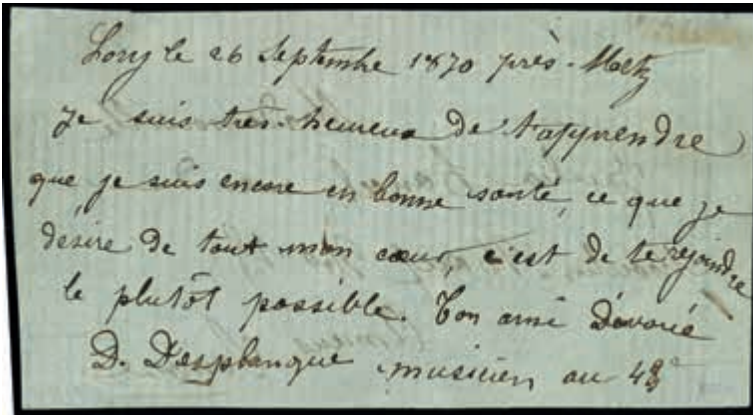 Lory le 26 Septembre 1870 près Metz
Je suis très heureux de t'apprendre
que je suis encore en bonne santé, ce que je
désire de tout mon cœur, c'est de te rejoindre
le plutôt possible. Ton ami dévoué
D. Desplanque musicien au 43e